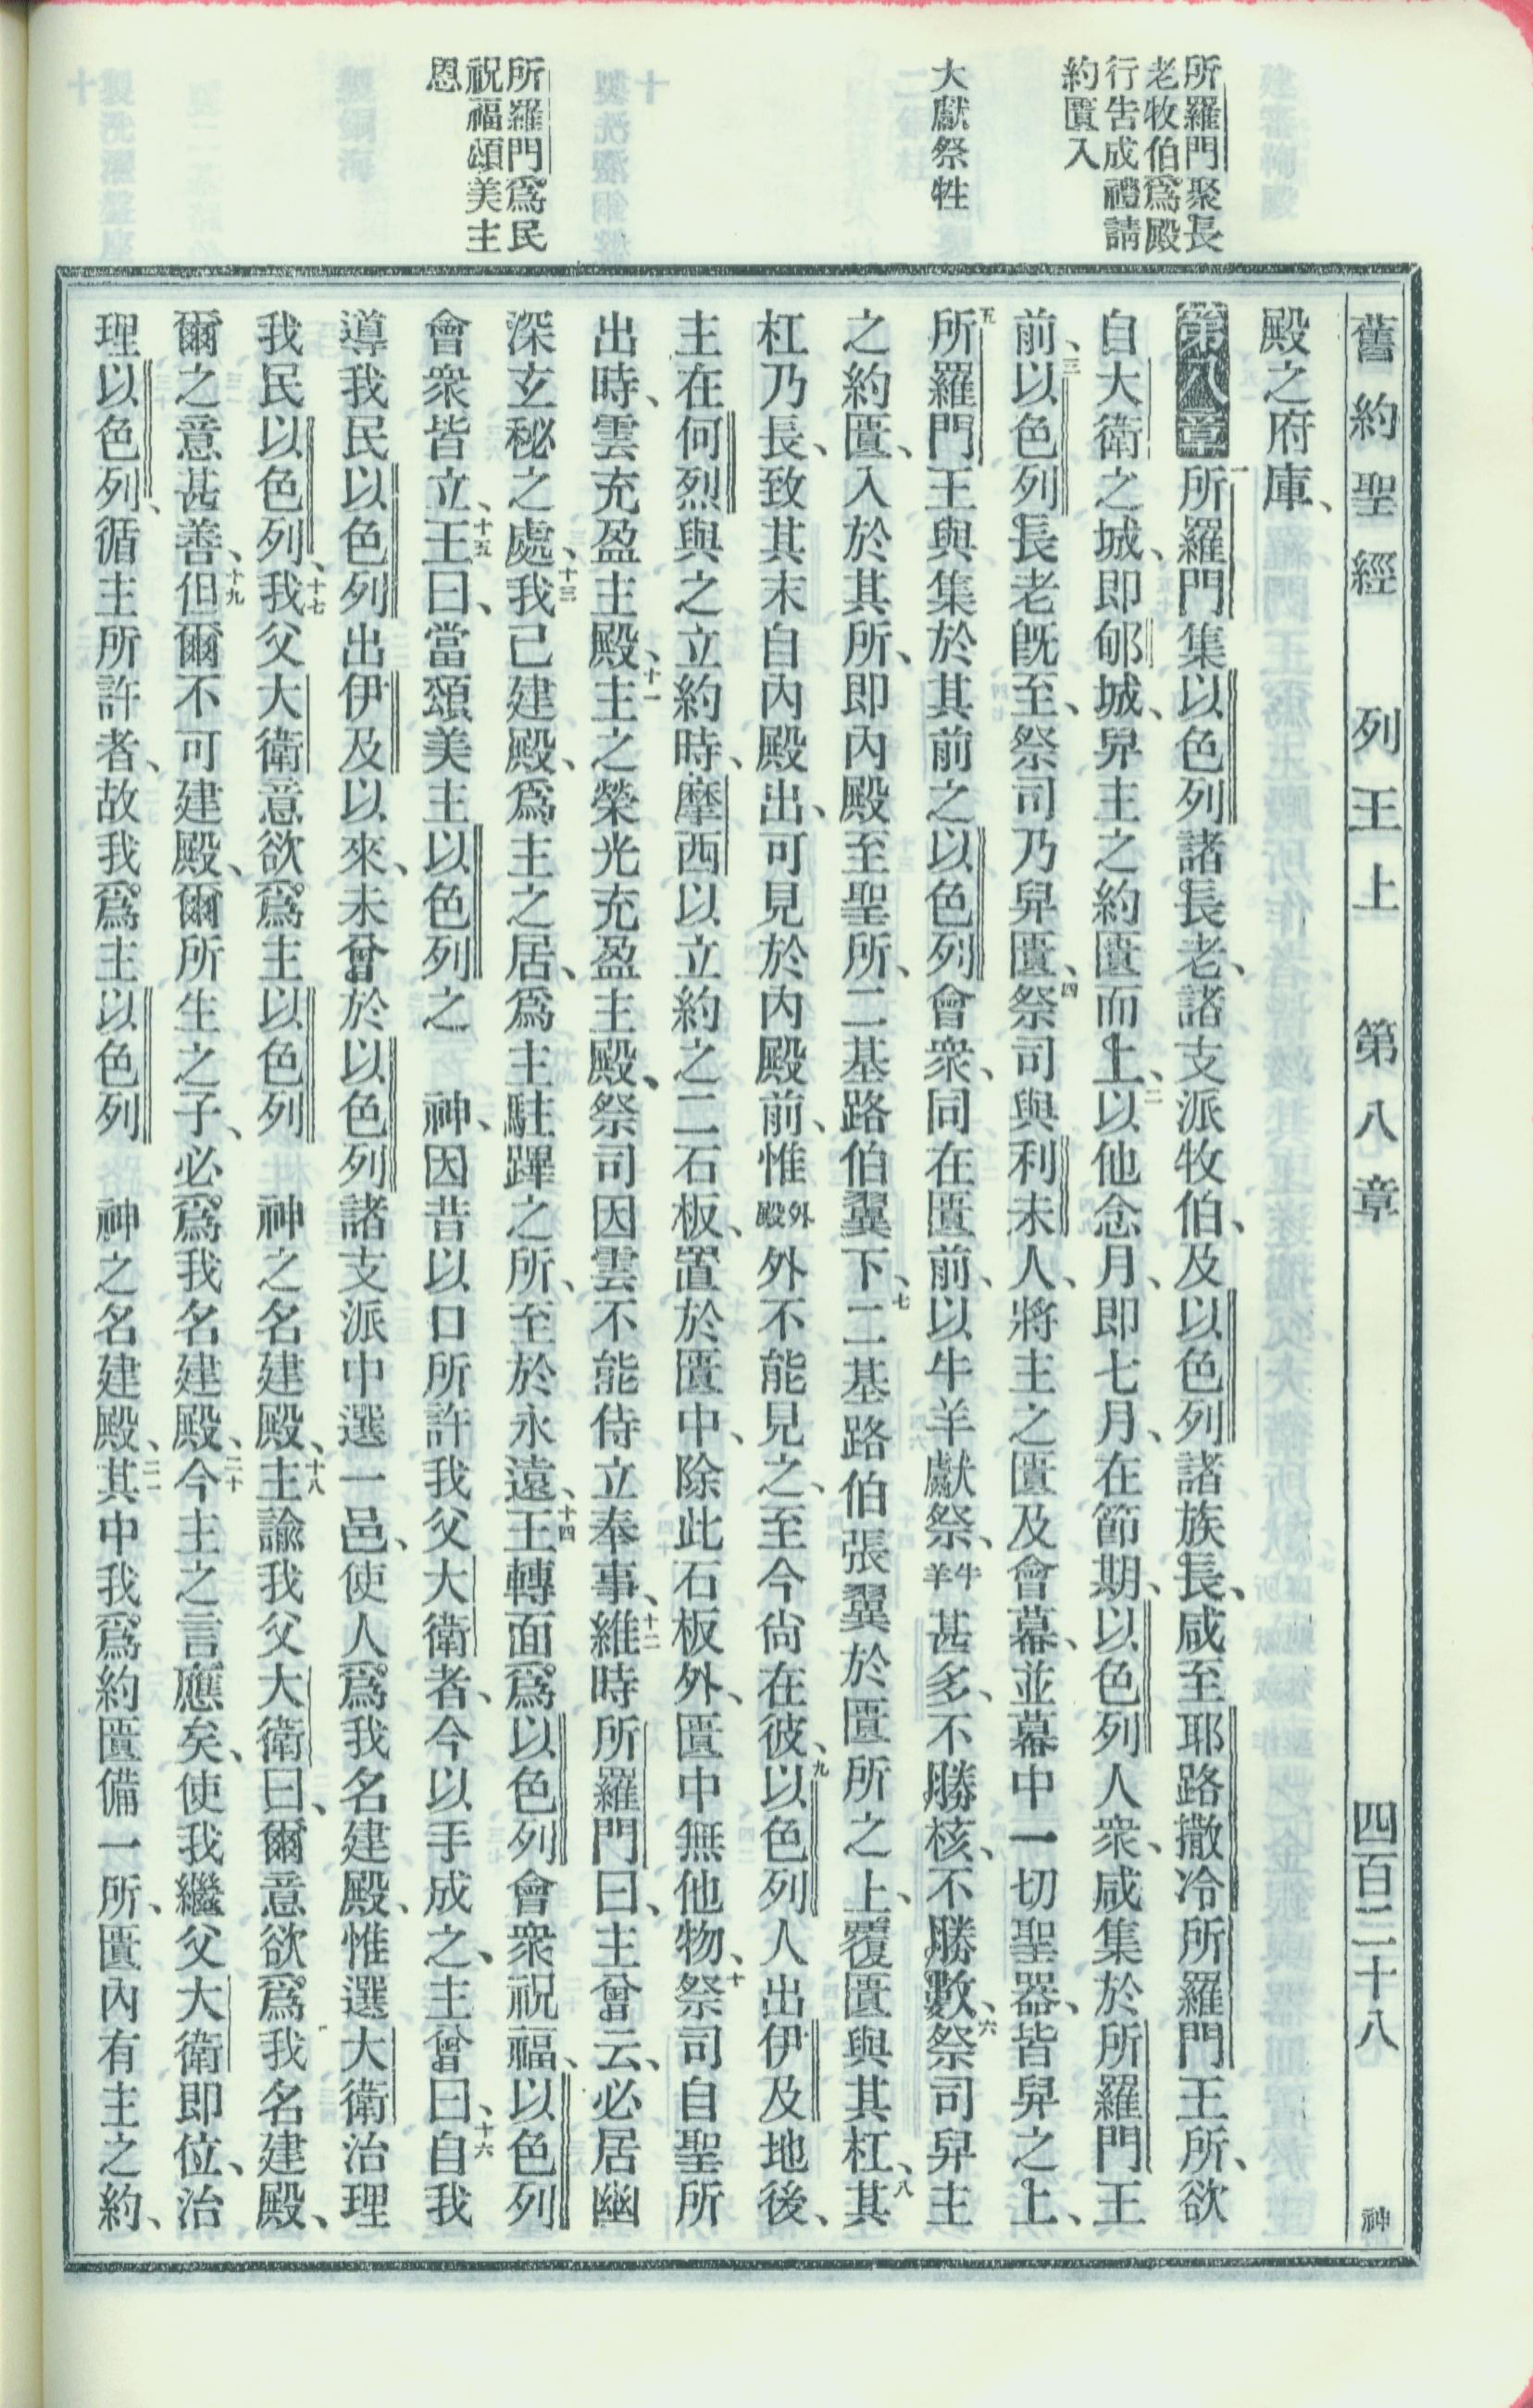 舊約聖經 列王上 第八章 四百三十八 神
所羅門聚長
老牧伯爲殿
行告成禮請
約匱入
大獻祭牲
所羅門爲民
祝福頌美主
恩
殿之府庫、
第八章 一所羅門集以色列諸長老、諸支派牧伯、及以色列諸族長、咸至耶路撒冷所羅門王所、欲
自大衛之城、卽郇城、舁主之約匱而上、二以他念月、卽七月、在節期、以色列人衆、咸集於所羅門王
前、三以色列長老旣至、祭司乃舁匱、四祭司與利未人、將主之匱及會幕、並幕中一切聖器、皆舁之上、
五所羅門王與集於其前之以色列會衆、同在匱前、以牛羊獻祭、牛羊甚多、不勝核、不勝數、六祭司舁主
之約匱、入於其所、卽內殿至聖所、二基路伯翼下、七二基路伯張翼於匱所之上、覆匱與其杠、八其
杠乃長、致其末自內殿出、可見於內殿前、惟外殿外不能見之、至今尙在彼、九以色列人出伊及地後、
主在何烈與之立約時、摩西以立約之二石板、置於匱中、除此石板外、匱中無他物、十祭司自聖所
出時、雲充盈主殿、十一主之榮光充盈主殿、祭司因雲不能侍立奉事、十二維時所羅門曰、主曾云、必居幽
深玄秘之處、十三我已建殿、爲主之居、爲主駐蹕之所、至於永遠、十四王轉面爲以色列會衆祝福、以色列
會衆皆立、十五王曰、當頌美主以色列之 神、因昔以口所許我父大衛者、今以手成之、主曾曰、十六自我
導我民以色列出伊及以來、未曾於以色列諸支派中選一邑、使人爲我名建殿、惟選大衛治理
我民以色列、十七我父大衛意欲爲主以色列 神之名建殿、十八主諭我父大衛曰、爾意欲爲我名建殿、
爾之意甚善、十九但爾不可建殿、爾所生之子、必爲我名建殿、二十今主之言應矣、使我繼父大衛卽位、治
理以色列、循主所許者、故我爲主以色列 神之名建殿、二一其中我爲約匱備一所、匱內有主之約、